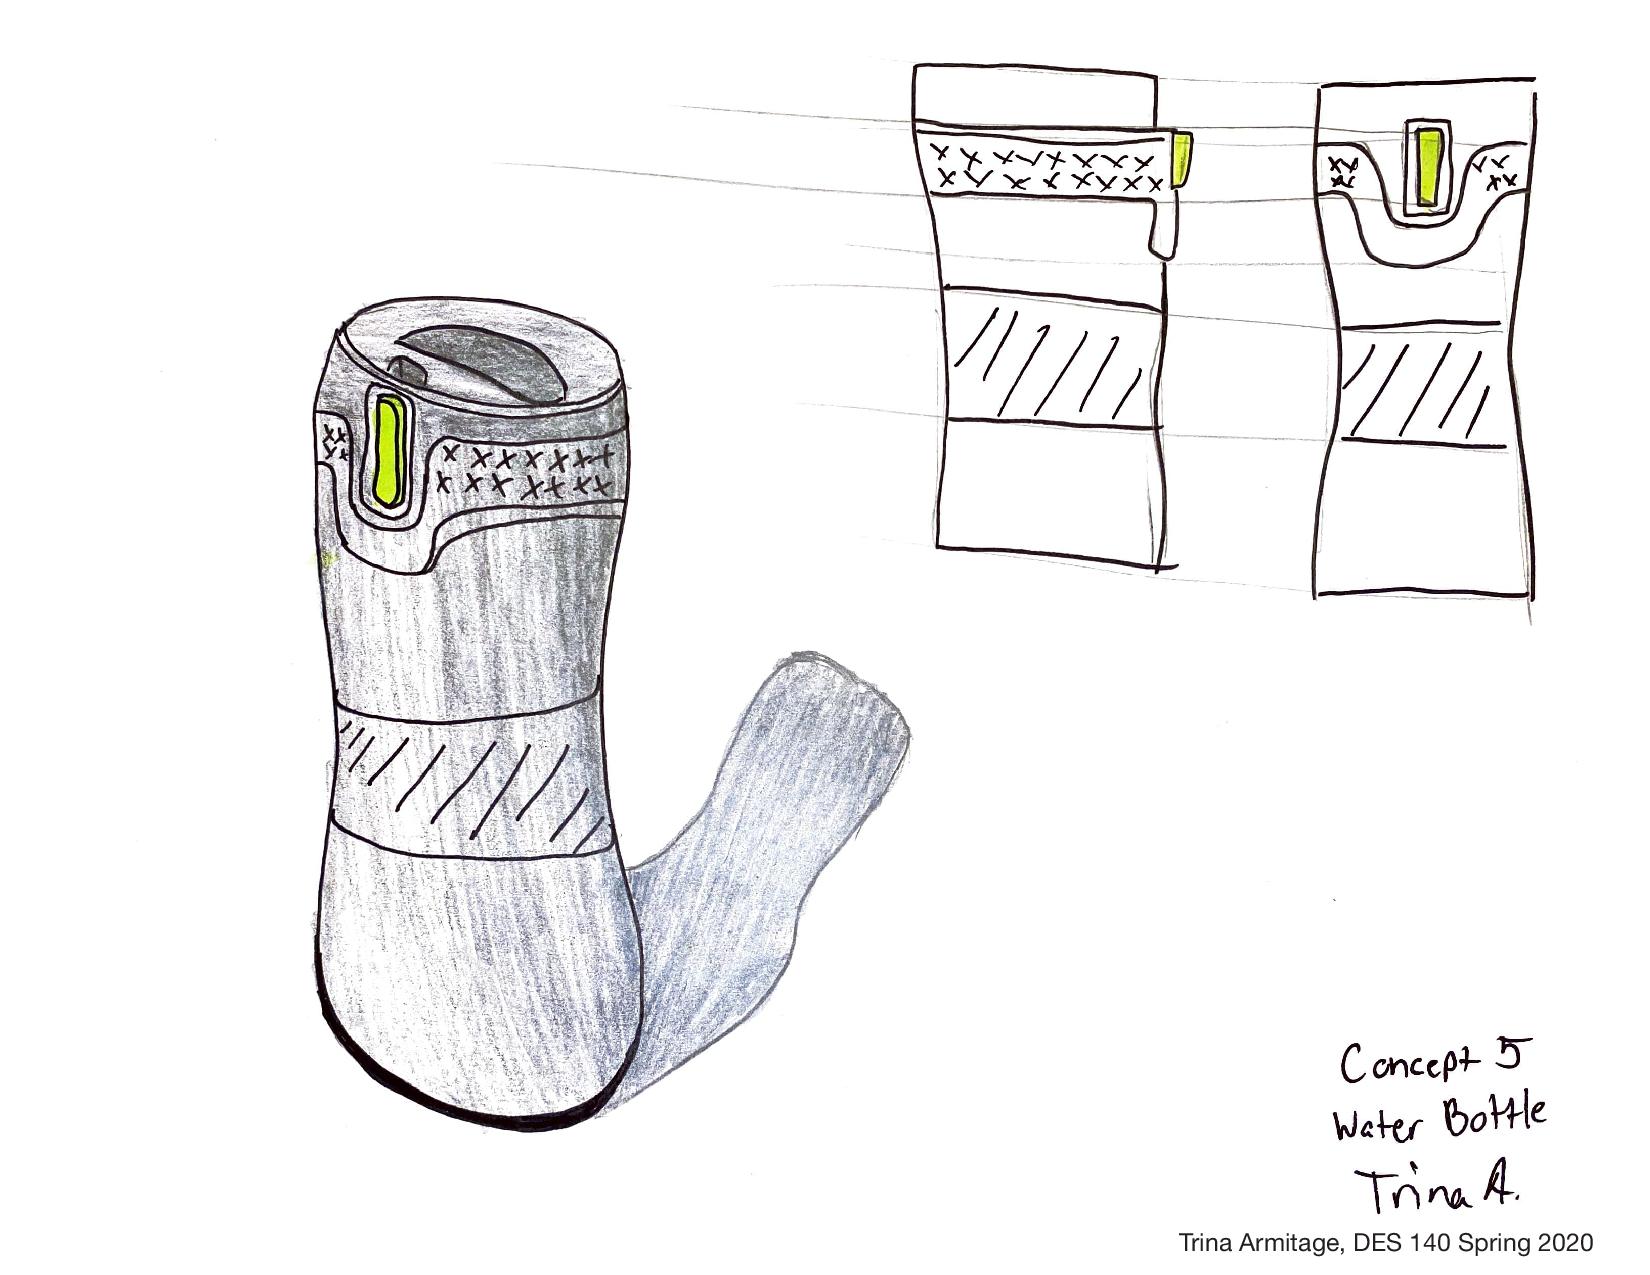 Concept 5
Water Bottle
Trina A.
Trina Armitage, DES 140 Spring 2020